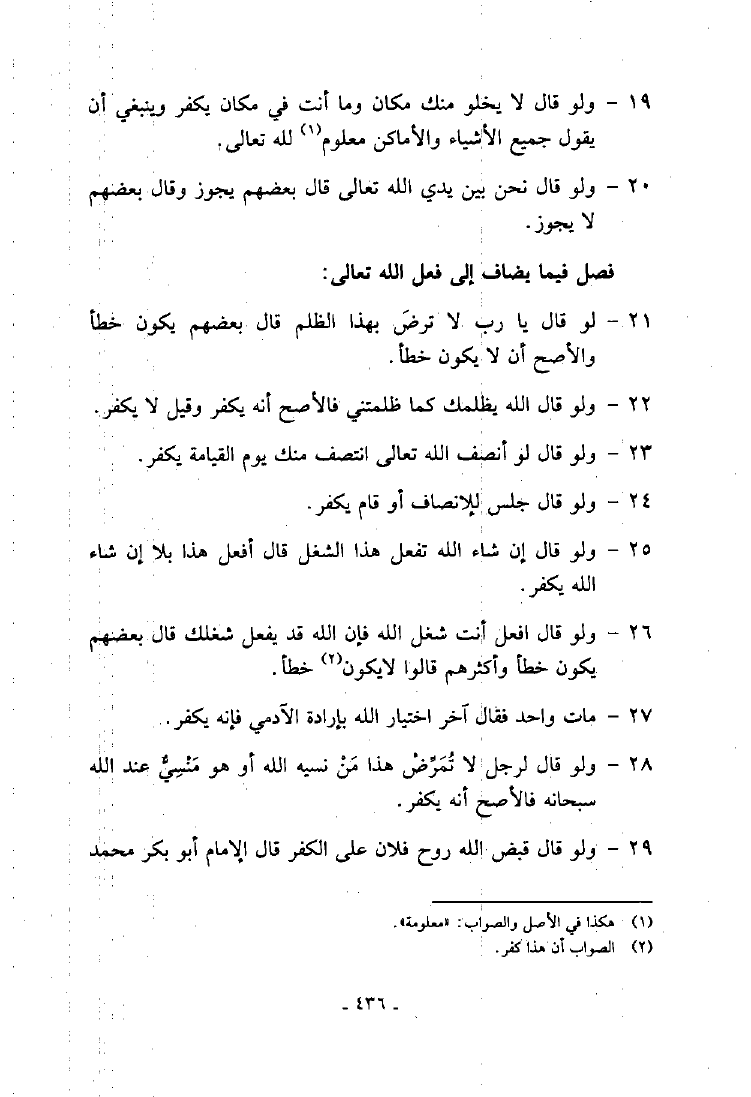 ١٩ - ولو قال لا يخلو منك مكان وما أنت في مكان يكفر وينبغي أن
يقول جميع الأشياء والأماكن معلوم(١) لله تعالى.
٢٠ - ولو قال نحن بين يدي الله تعالى قال بعضهم يجوز وقال بعضهم
لا يجوز.
فصل فيما يضاف إلى فعل الله تعالى:
٢١ - لو قال يا رب لا ترضَ بهذا الظلم قال بعضهم يكون خطأ
والأصح أن لا يكون خطأ.
٢٢ - ولو قال الله يظلمك كما ظلمتني فالأصح أنه يكفر وقيل لا يكفر.
٢٣ - ولو قال لو أنصف الله تعالى انتصف منك يوم القيامة يكفر.
٢٤ - ولو قال جلس للإنصاف أو قام يكفر.
٢٥ - ولو قال إن شاء الله تفعل هذا الشغل قال أفعل هذا بلا إن شاء
الله يكفر.
٢٦ - ولو قال افعل أنت شغل الله فإن الله قد يفعل شغلك قال بعضهم
يكون خطأ وأكثرهم قالوا لايكون(٢) خطأ.
٢٧ - مات واحد فقال آخر اختيار الله بإرادة الآدمي فإنه يكفر.
٢٨ - ولو قال لرجل لا تُمَرِّضْ هذا مَنْ نسيه الله أو هو مَنْسِيٌّ عند الله
سبحانه فالأصح أنه يكفر.
٢٩ - ولو قال قبض الله روح فلان على الكفر قال الإمام أبو بكر محمد
(١) هكذا في الأصل والصواب: «معلومة».
(٢) الصواب أن هذا كفر.
- ٤٣٦ -